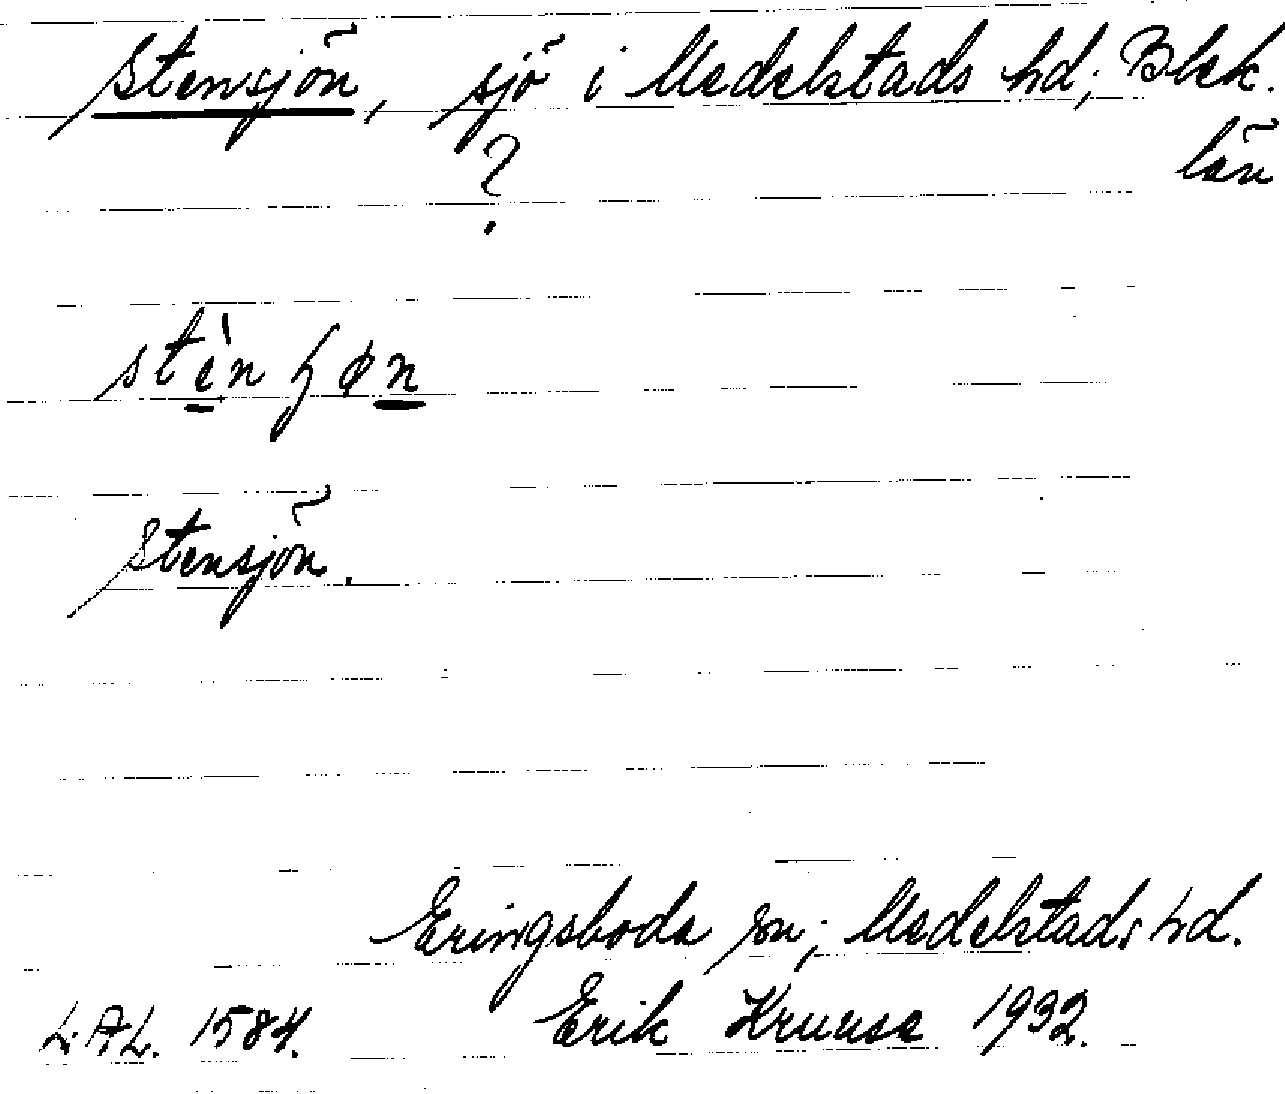 Stensjön, sjö i Medelstads hd; Blek.
län
?
Stensjön.
Eringsboda sn; Medelstads hd.
L.A.L. 1584. Erik Kruuse 1932.